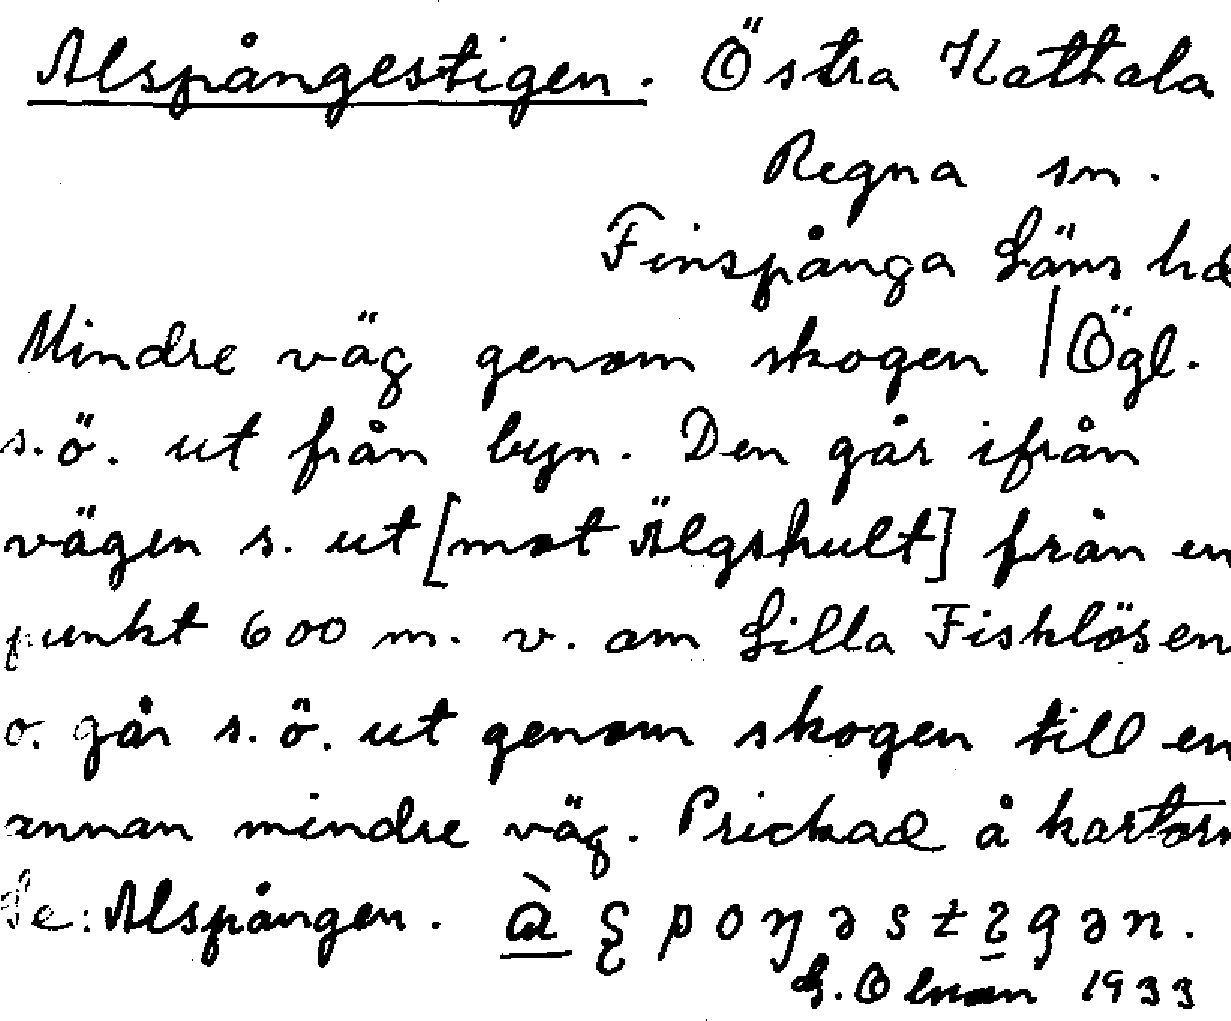 Alspångestigen. Östra Kattala
Regna sn.
Finspånga Läns hd
Mindre väg genom skogen | Ögl.
s.ö. ut från byn. Den går ifrån
vägen s. ut [mot Älgshult] från en
punkt 600 m. v. om Lilla Fisklösen
o. går s.ö. ut genom skogen till en
annan mindre väg. Prickad å kartan
Se: Alspången.
1933